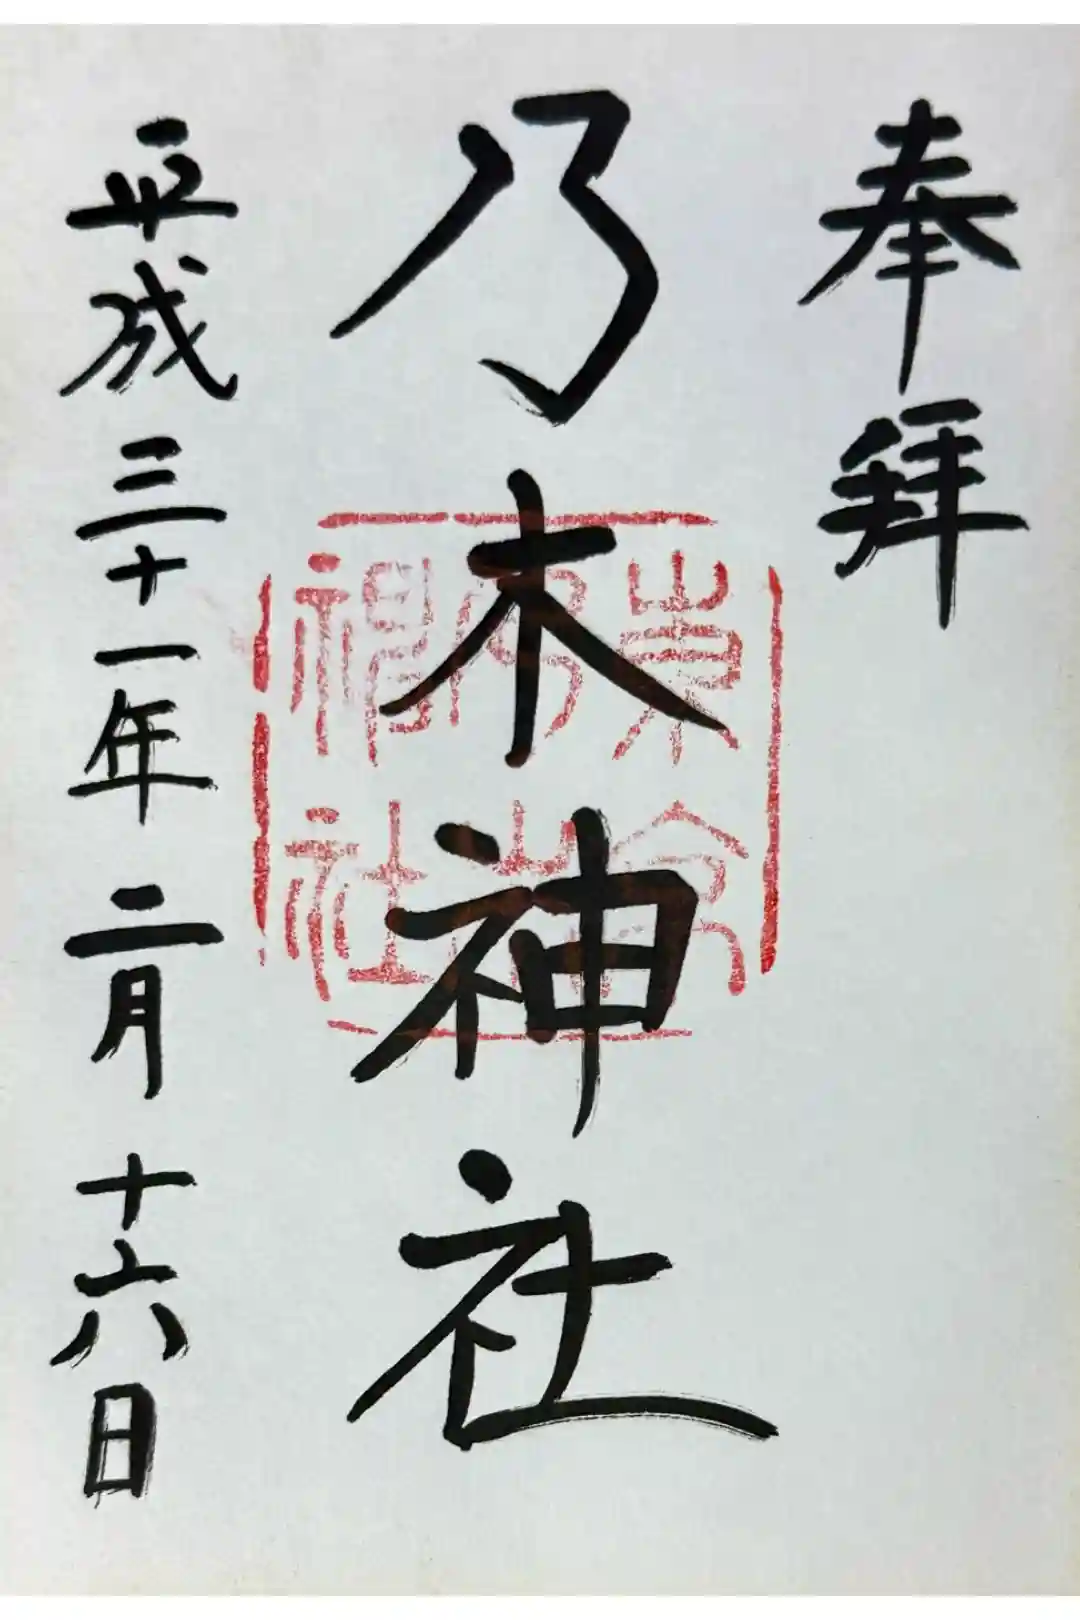 奉拝
乃木神社
平成三十一年二月十六日